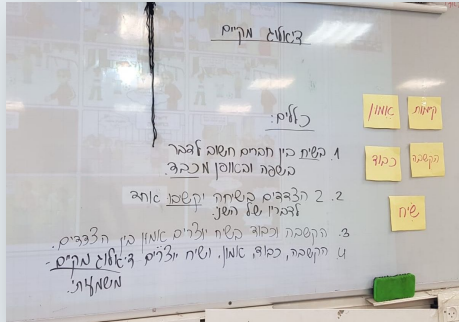 דיאלוג מקיים
כללים:
1. השיח בין חברים חשוב לדבר
בשפה ובאופן מכבד.
2. 2 הצדדים בשיחה יקשיבו אחד
לדבריו של השני.
3. הקשבה וכבוד בשיח יוצרים אמון בין הצדדים.
4 הקשבה, כבוד, אמון, ושיח יוצרים דיאלוג מקיים -
משמעותי.
אמון
קיימות
כבוד
הקשבה
שיח